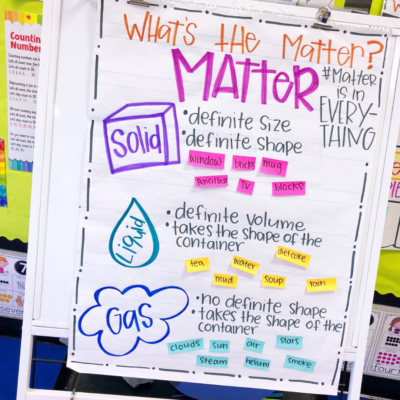 What's the Matter?
MATTER
#Matter
is in
EVERY-
THING
Solid
•definite size
•definite shape
window bricks mug
pencil TV blocks
Liquid
•definite volume
•takes the shape of the
container
tea water diet coke
mud soup rain
Gas
•no definite shape
•takes the shape of the
container
clouds sun air stars
steam helium smoke
Counting
Number
seven
four